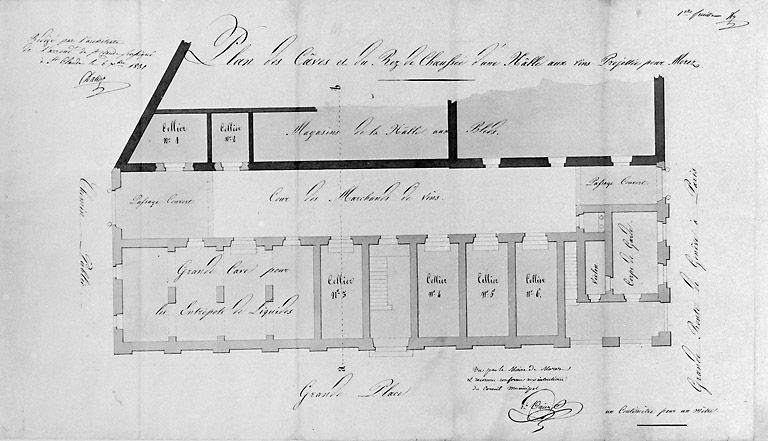 1ère feuille
Rédigé par l'architecte
de l'arrond. de St Claude soussigné
à St Claude le 8 9bre 1831
Plan des Caves et du Rez de Chaussée d'une Halle aux vins Projettée pour Morez
b
Cellier
N° 1
Cellier
N° 2
Magasins de la Halle aux Bleds.
Chemin Public
Passage Couvert
Cour des Marchands de vins.
Passage Couvert
Grande Route de Genève à Paris
Grande Cave pour
les Entrepôts de Liquides
Cellier
N° 3
Cellier
N° 4
Cellier
N° 5
Cellier
N° 6.
Corps de Garde
a
Grande Place
Vu par le Maire de Morez
et reconnu conforme aux intentions
du Conseil municipal
un Centimètre pour un Mètre.